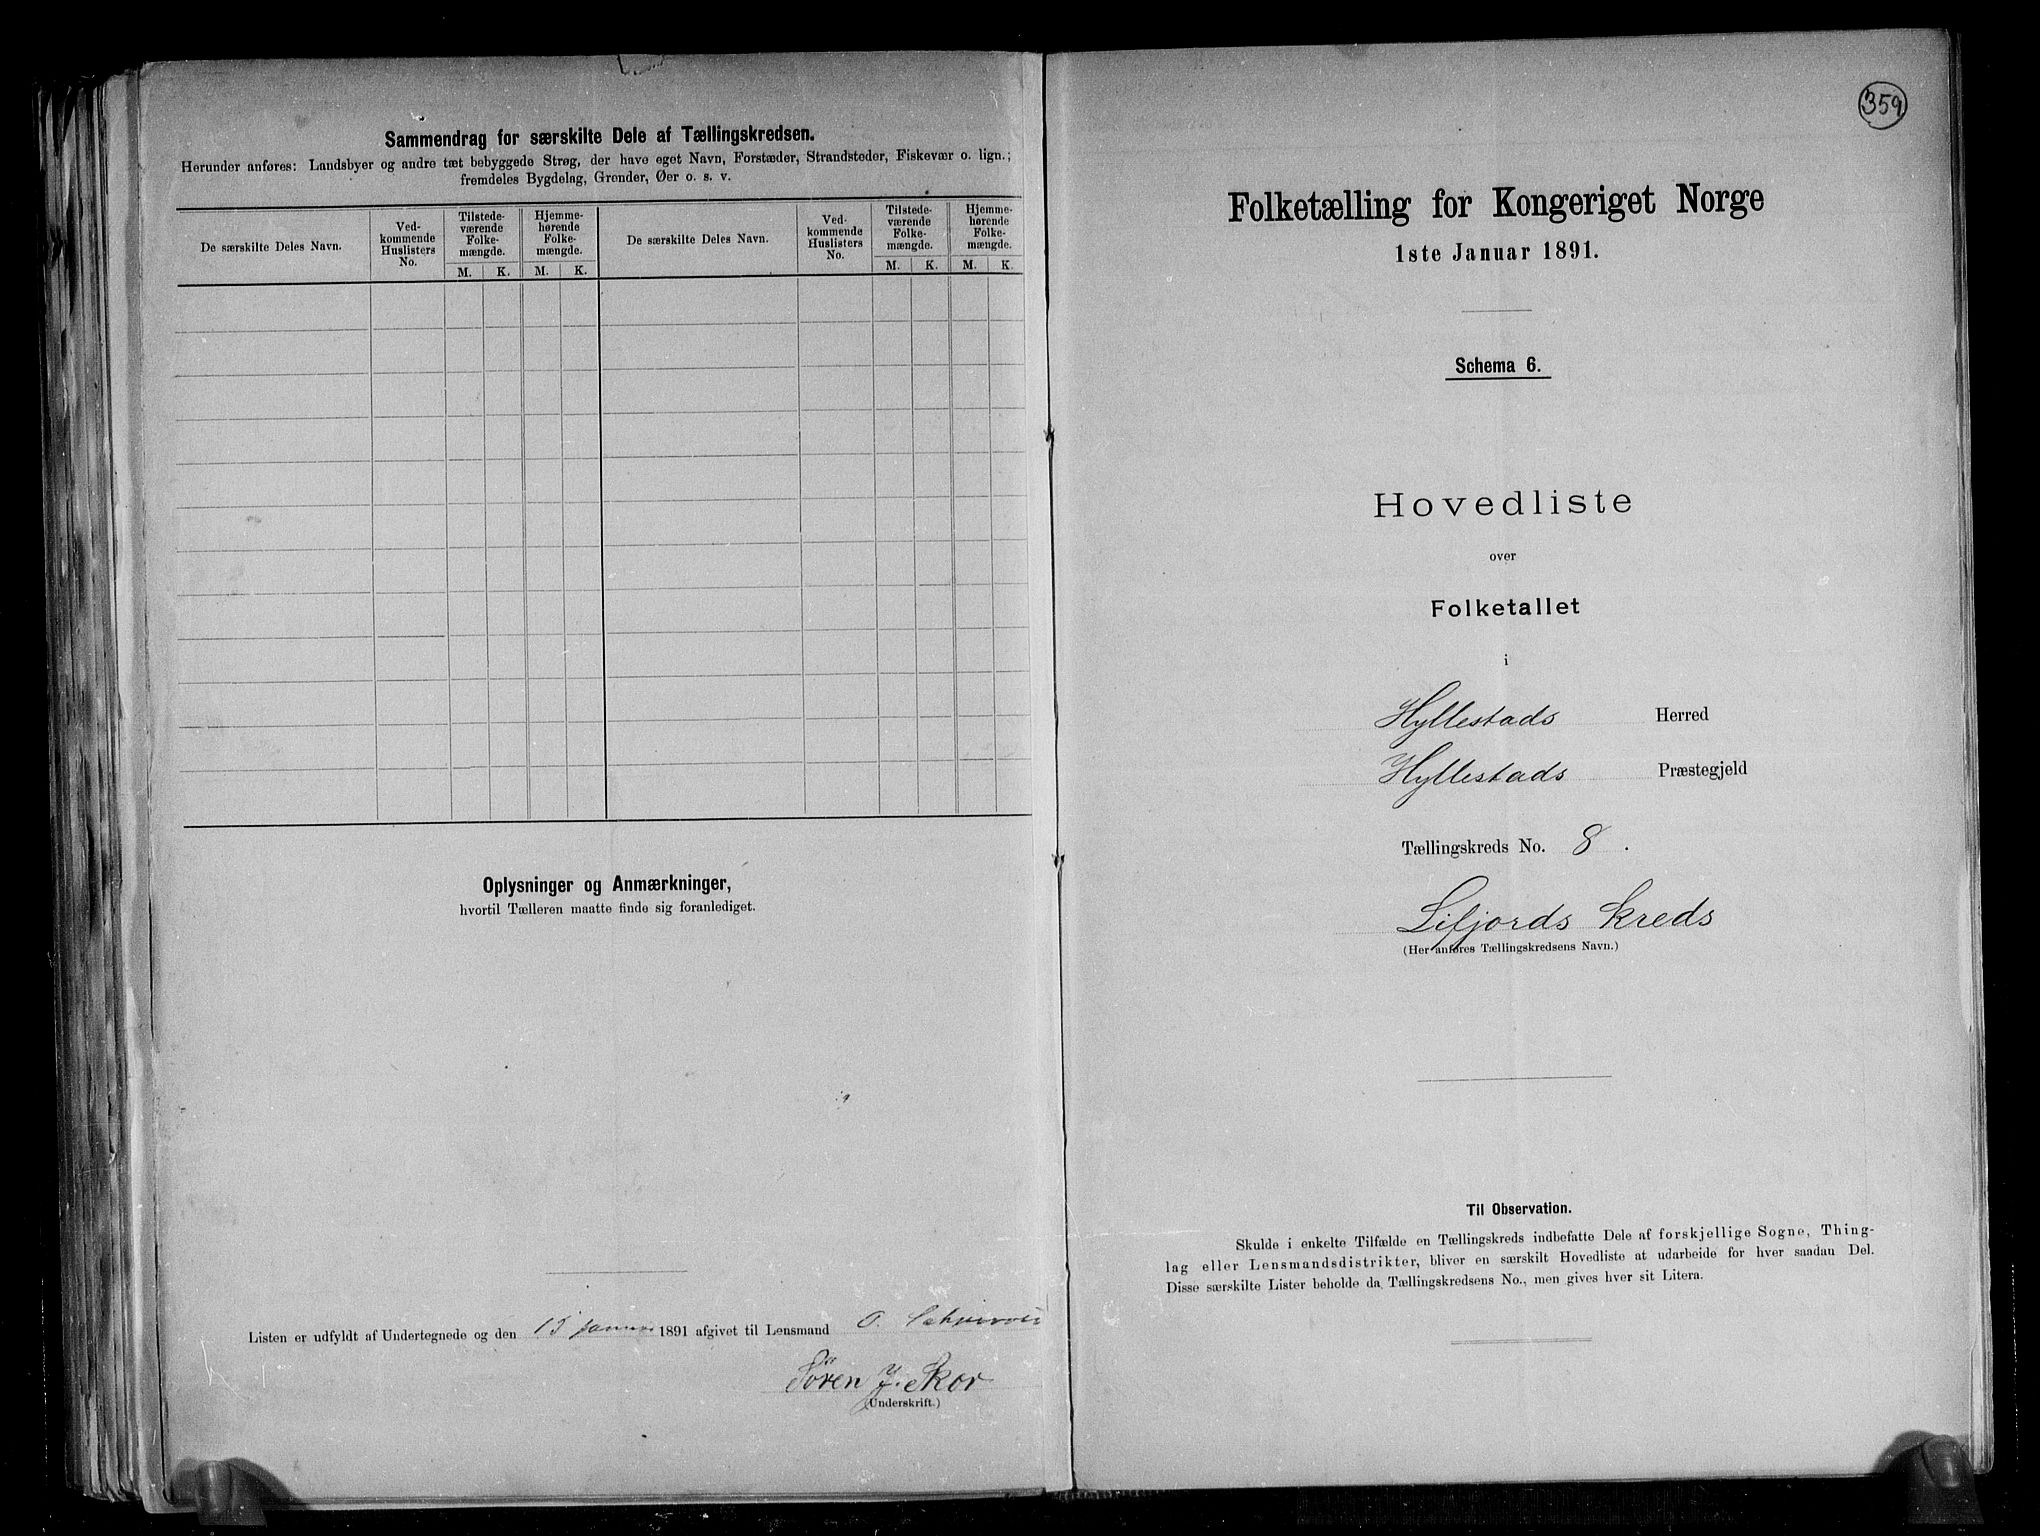 Sammendrag for særskilte Dele af Tællingskredsen.
Herunder anføres: Landsbyer og andre tæt bebyggede Strøg, der have eget Navn, Forstæder, Strandsteder, Fiskevær o. lign.;
fremdeles Bygdelag, Grender, Øer o. s. v.
De særskilte Deles Navn.
Ved-
kommende
Huslisters
No.
Tilstede-
værende
Folke-
mængde.
Hjemme-
hørende
Folke-
mængde.
M. K. M. K.
De særskilte Deles Navn.
Ved-
kommende
Huslisters
No.
Tilstede-
værende
Folke-
mængde.
Hjemme-
hørende
Folke-
mængde.
M. K. M. K.
Oplysninger og Anmærkninger,
hvortil Tælleren maatte finde sig foranlediget.
Listen er udfyldt af Undertegnede og den 15 Januar 1891 afgivet til Lensmand O.
Søren J. Skor
(Underskrift.)
359
Folketælling for Kongeriget Norge
1ste Januar 1891.
Schema 6.
Hovedliste
over
Folketallet
i
Hyllestads Herred
Hyllestads Præstegjeld
Tællingskreds No. 8.
Lifjords Kreds
(Her anføres Tællingskredsens Navn.)
Til Observation.
Skulde i enkelte Tilfælde en Tællingskreds indbefatte Dele af forskjellige Sogne, Thing-
lag eller Lensmandsdistrikter, bliver en særskilt Hovedliste at udarbeide for hver saadan Del.
Disse særskilte Lister beholde da Tællingskredsens No., men gives hver sit Litera.